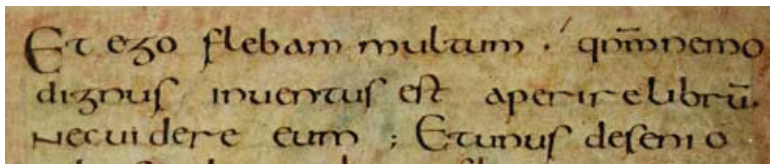 Et ego flebam multum · qnm̄ nemo
dignus inuentus est aperire librū.
Nec uidere eum ; Et unus de senio